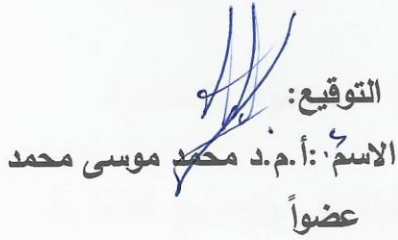 التوقيع:
الاسم :أ.م.د محمد موسى محمد
عضواً